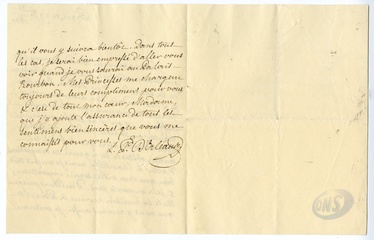 qu'il vous y suivra bientôt. Dans tout
les cas, je serai bien empressé d'aller vous
voir quand je vous saurai au Palais
Bourbon. Mes Princesses me chargent
toujours de leurs complimens pour vous
& c'est de tout mon cœur, Madame,
que j'y ajoute l'assurance de tous les
sentimens bien sincères que vous me
connaissez pour vous.
L. P. D'Orléans